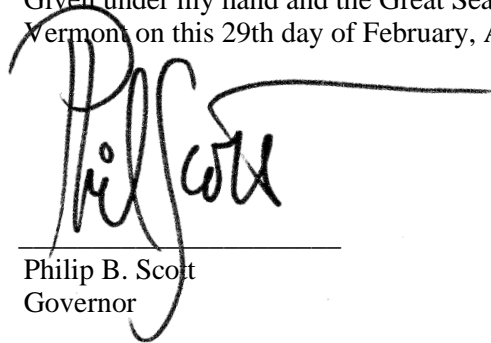 Given under my hand and the Great Sea
Vermont on this 29th day of February, A
Phil Scott
Philip B. Scott
Governor